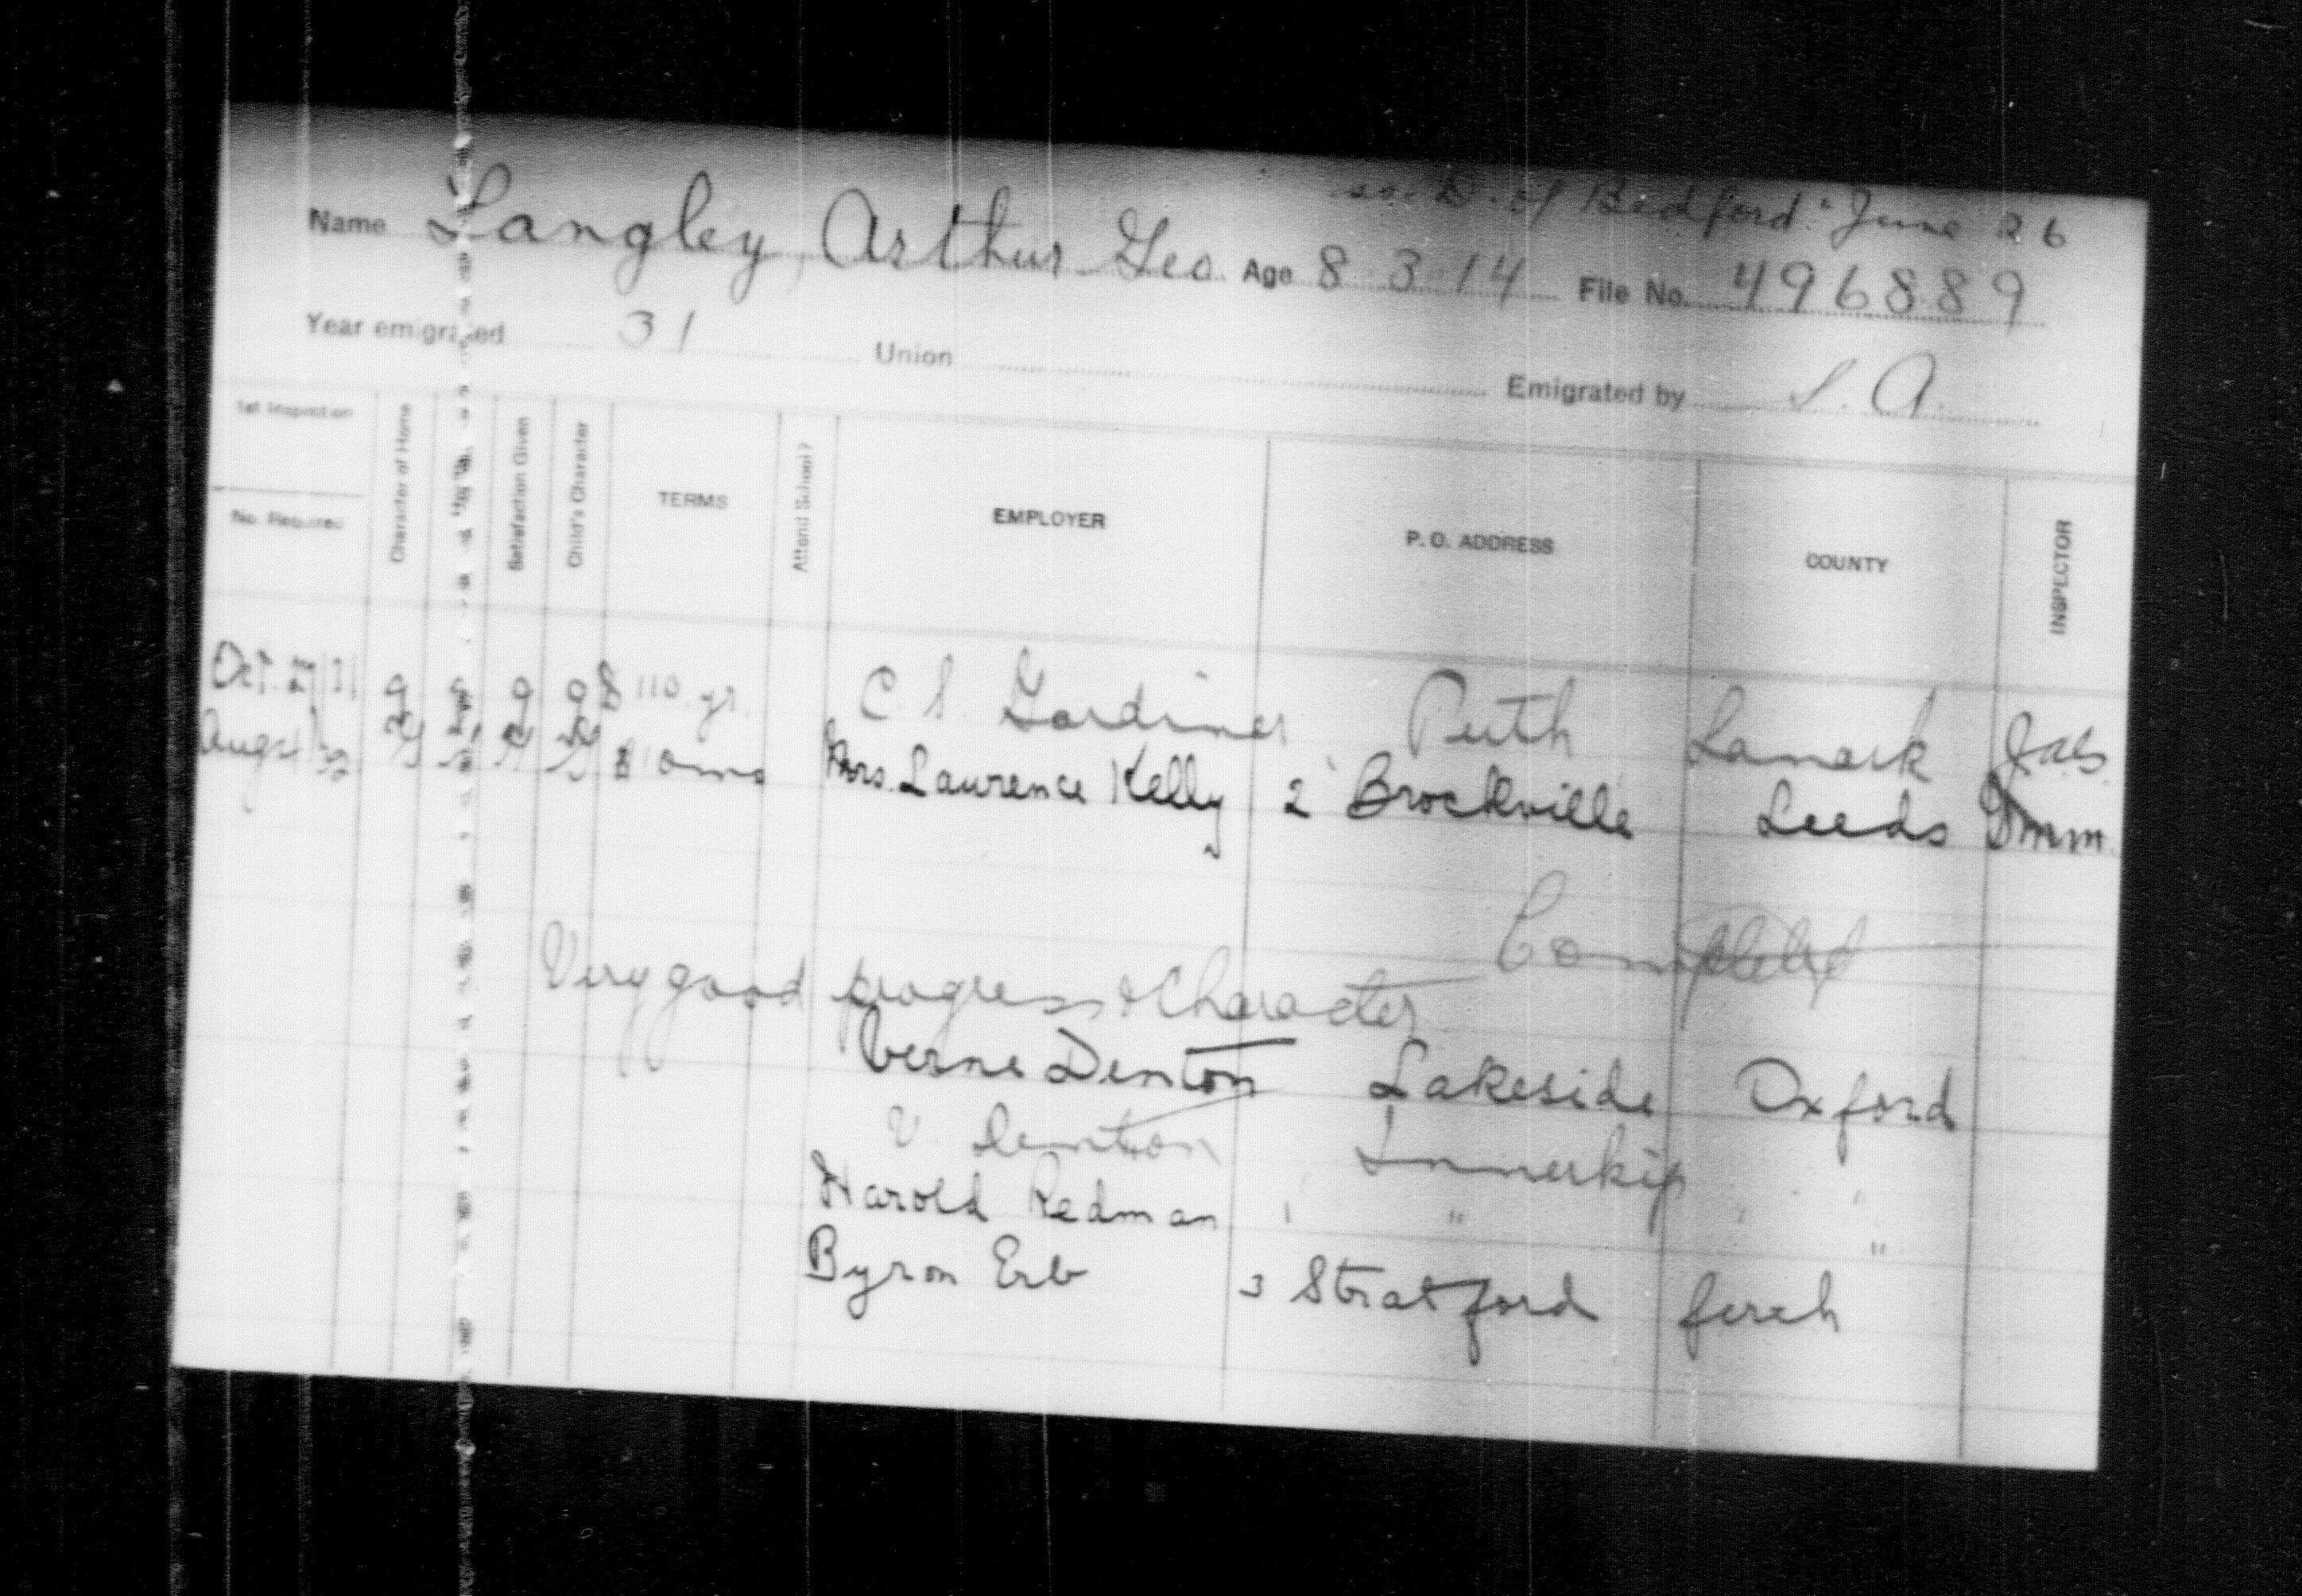 D. of Bedford" June 26
Name Langley, Arthur Geo. Age 8 3 14 File No. 496889
Year emigrated 31 Union Emigrated by S. A.
1st Inspection
No. Required
Character of Home
Satisfaction Given
Child's Character
TERMS
Attend School?
EMPLOYER
P. O. ADDRESS
COUNTY
INSPECTOR
Oct. 31 g g g $ 110 yr. C. S. Gardiner Perth Lanark
Aug 32 $ 10 mo Mrs. Laurence Kelly 2 Brockville Leeds Dmm.
Completed
Very good progress & Character
Verne Denton Lakeside Oxford
V. Denton Innerkip "
Harold Redman 1 " "
Byron Erb 3 Stratford Perth